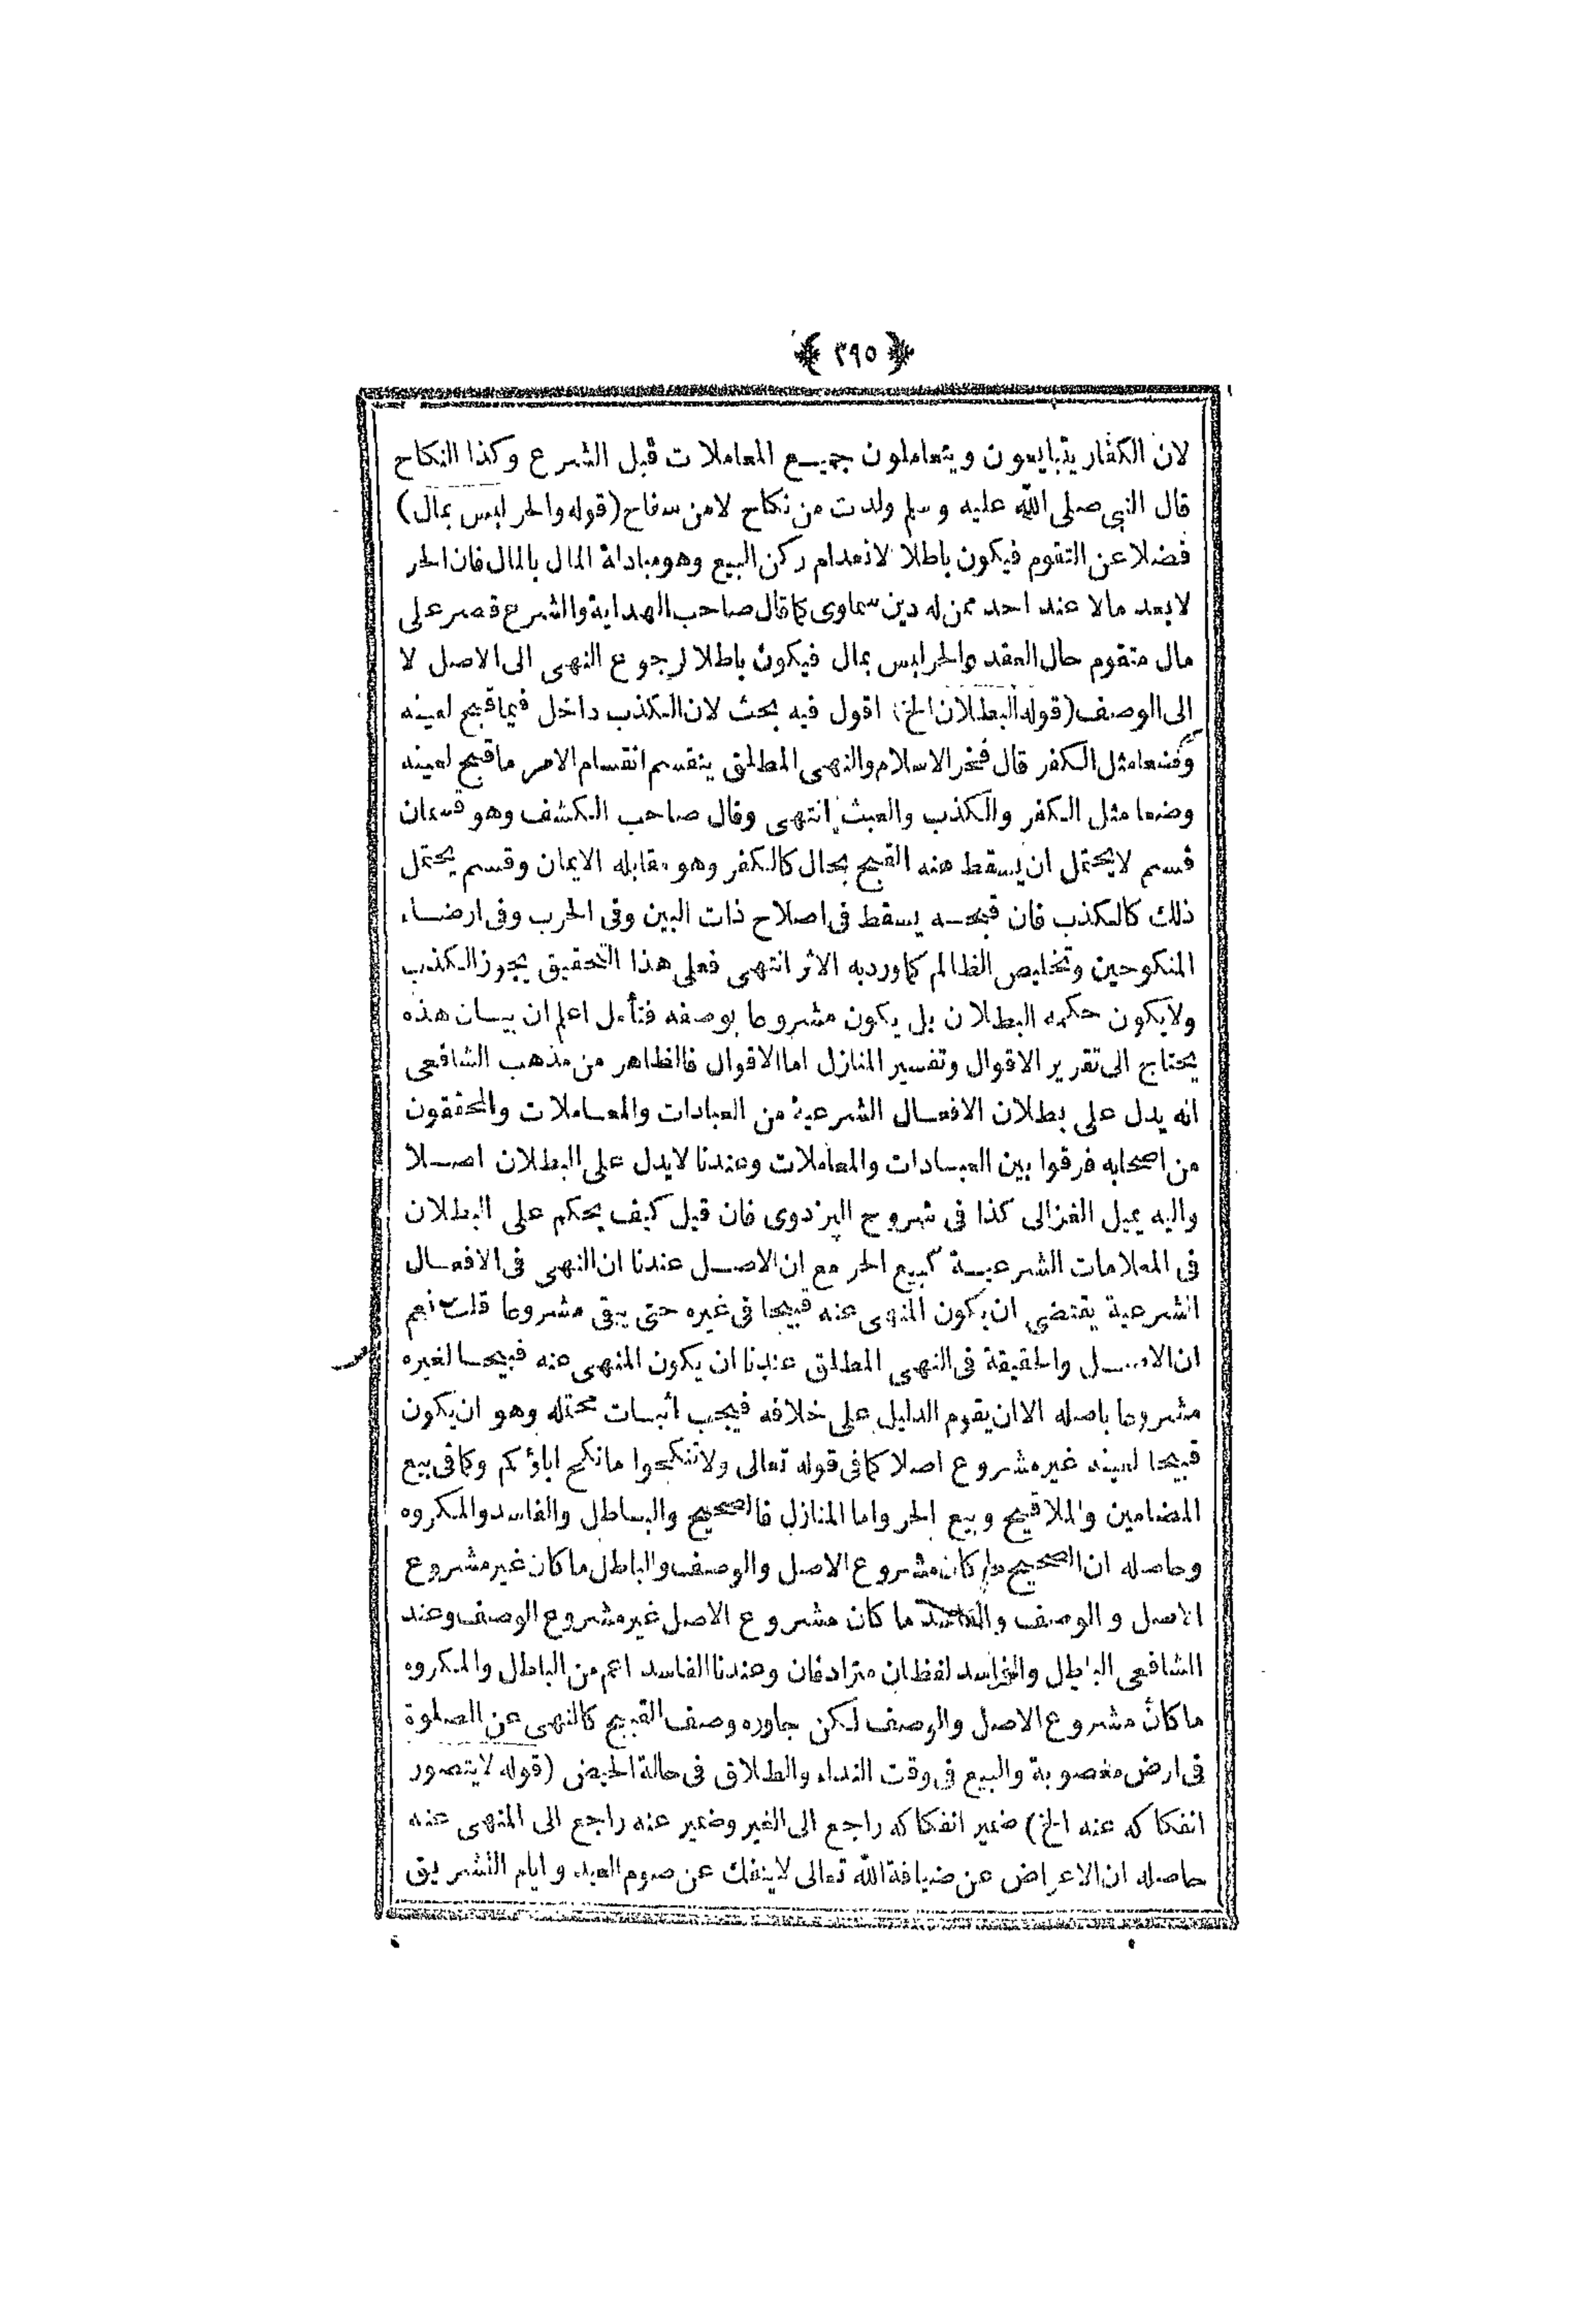 ﴿ ٣٩٥ ﴾
لان الكفار يتبايعون ويتعاملون جميع المعاملات قبل الشرع وكذا النكاح
قال النبى صلى الله عليه وسلم ولدت من نكاح لامن سفاح (قوله والحر ليس بمال)
فضلا عن التقوم فيكون باطلا لانعدام ركن البيع وهو مبادلة المال بالمال فان الحر
لايعد مالا عند احد ممن له دين سماوى كما قال صاحب الهداية والشرع قصر على
مال متقوم حال العقد والحر ليس بمال فيكون باطلا لرجوع النهى الى الاصل لا
الى الوصف (قوله البطلان الخ) اقول فيه بحث لان الكذب داخل فيما قبح لعينه
وضعا مثل الكفر قال فخر الاسلام والنهى المطلق ينقسم انقسام الامر ما قبح لعينه
وضعا مثل الكفر والكذب والعبث انتهى وقال صاحب الكشف وهو قسمان
قسم لايحتمل ان يسقط منه القبح بحال كالكفر وهو مقابله الايمان وقسم يحتمل
ذلك كالكذب فان قبحه يسقط فى اصلاح ذات البين وفى الحرب وفى ارضاء
المنكوحين وتخليص الظالم كما ورد به الاثر انتهى فعلى هذا التحقيق يجوز الكذب
ولايكون حكمه البطلان بل يكون مشروعا بوصفه فتأمل اعلم ان بيان هذه
يحتاج الى تقرير الاقوال وتفسير المنازل اما الاقوال فالظاهر من مذهب الشافعى
انه يدل على بطلان الافعال الشرعية من العبادات والمعاملات والمحققون
من اصحابه فرقوا بين العبادات والمعاملات وعندنا لايدل على البطلان اصلا
واليه يميل الغزالى كذا فى شروح البزدوى فان قيل كيف يحكم على البطلان
فى المعلامات الشرعية كبيع الحر مع ان الاصل عندنا ان النهى فى الافعال
الشرعية يقتضى ان يكون المنهى عنه قبيحا فى غيره حتى يبقى مشروعا قلت نعم
ان الاصل والحقيقة فى النهى المطلق عندنا ان يكون المنهى عنه قبيحا لغيره
مشروعا باصله الا ان يقوم الدليل على خلافه فيجب اثبات محتمله وهو ان يكون
قبيحا لعينه غير مشروع اصلا كما فى قوله تعالى ولاتنكحوا ما نكح اباؤكم وكما فى بيع
المضامين والملاقيح وبيع الحر واما المنازل فالصحيح والباطل والفاسد والمكروه
وحاصله ان الصحيح ما كان مشروع الاصل والوصف والباطل ما كان غير مشروع
الاصل والوصف والفاسد ما كان مشروع الاصل غير مشروع الوصف وعند
الشافعى الباطل والفاسد لفظان مترادفان وعندنا الفاسد اعم من الباطل والمكروه
ما كان مشروع الاصل والوصف لكن جاوره وصف القبيح كالنهى عن الصلوة
فى ارض مغصوبة والبيع فى وقت النداء والطلاق فى حالة الحيض (قوله لايتصور
انفكاكه عنه الخ) ضمير انفكاكه راجع الى الغير وضمير عنه راجع الى المنهى عنه
حاصله ان الاعراض عن ضيافة الله تعالى لاينفك عن صوم العيد وايام التشريق